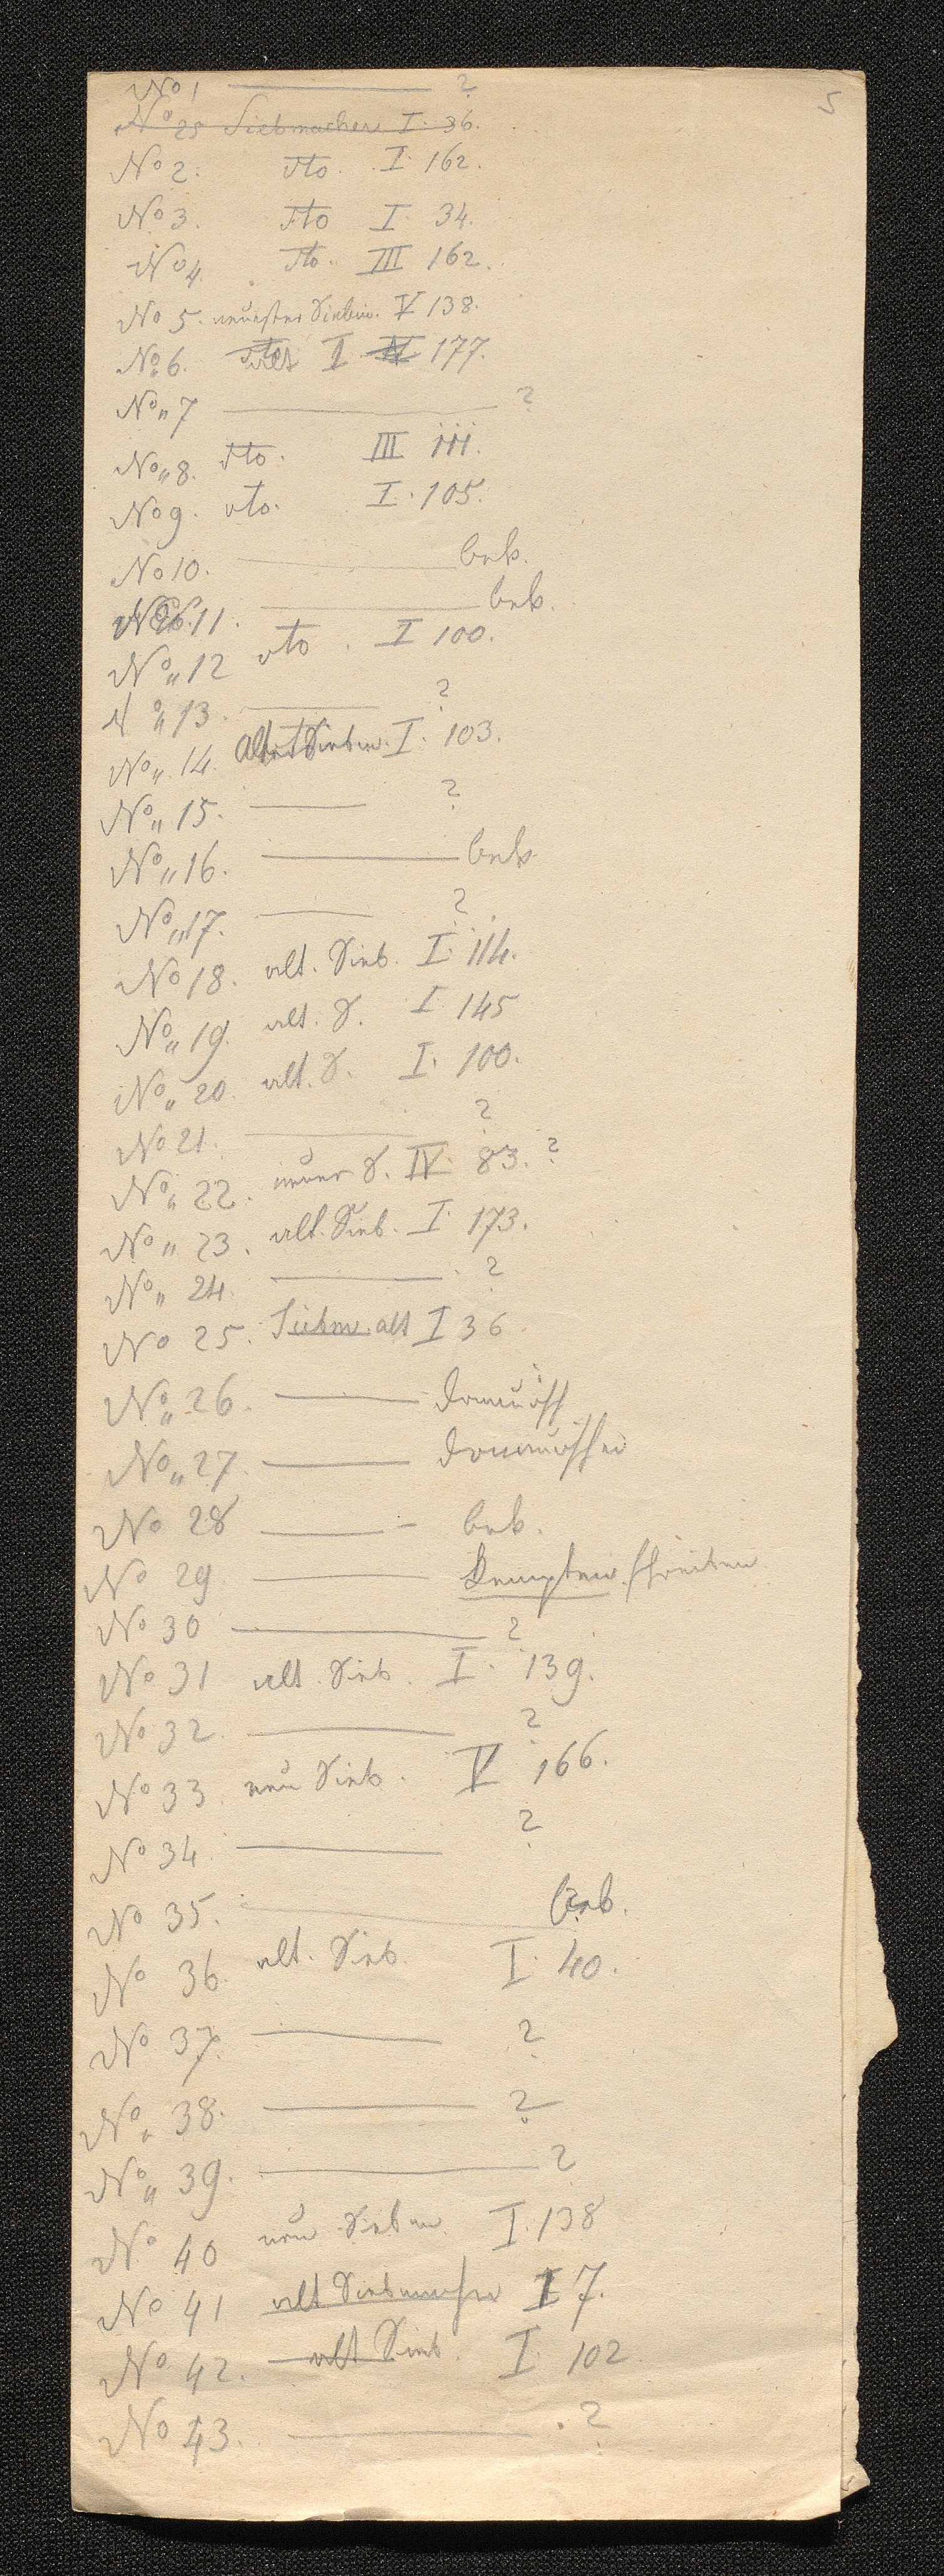 5
No 1 ——— ?
No 25 Siebmacher I. 36.
No 2. dto. I. 162.
No 3. dto I. 34.
No 4. dto. III 162.
No 5. neuester Siebm. V 138.
No 6. alt I 177.
No 7 ——— ?
No 8. dto. III 111.
No 9. dto. I. 105.
No 10. ——— bek.
No 11. ——— bek.
No 12 dto. I 100.
No 13. ——— ?
No 14. Alter Siebm. I. 103.
No 15. ——— ?
No 16. ——— bek.
No 17. ——— ?
No 18. alt. Sieb. I. 114.
No 19. alt. S. I 145
No 20. alt. S. I. 100.
No 21. ——— ?
No 22. neuer S. IV 83. ?
No 23. alt. Sieb. I. 173.
No 24. ——— ?
No 25. Siebm. alt I 36.
No 26. ———
No 27. ———
No 28 ——— bek.
No 29 ——— Kempten schreiben
No 30 ——— ?
No 31 alt. Sieb. I. 139.
No 32. ——— ?
No 33 neu Sieb. V 166.
No 34. ——— ?
No 35. ——— bek.
No 36. alt. Sieb. I. 40.
No 37. ——— ?
No 38. ——— ?
No 39. ——— ?
No 40 neu Siebm. I. 138
No 41 alt Siebmacher I 7.
No 42. alt Sieb. I 102
No 43. ——— . ?